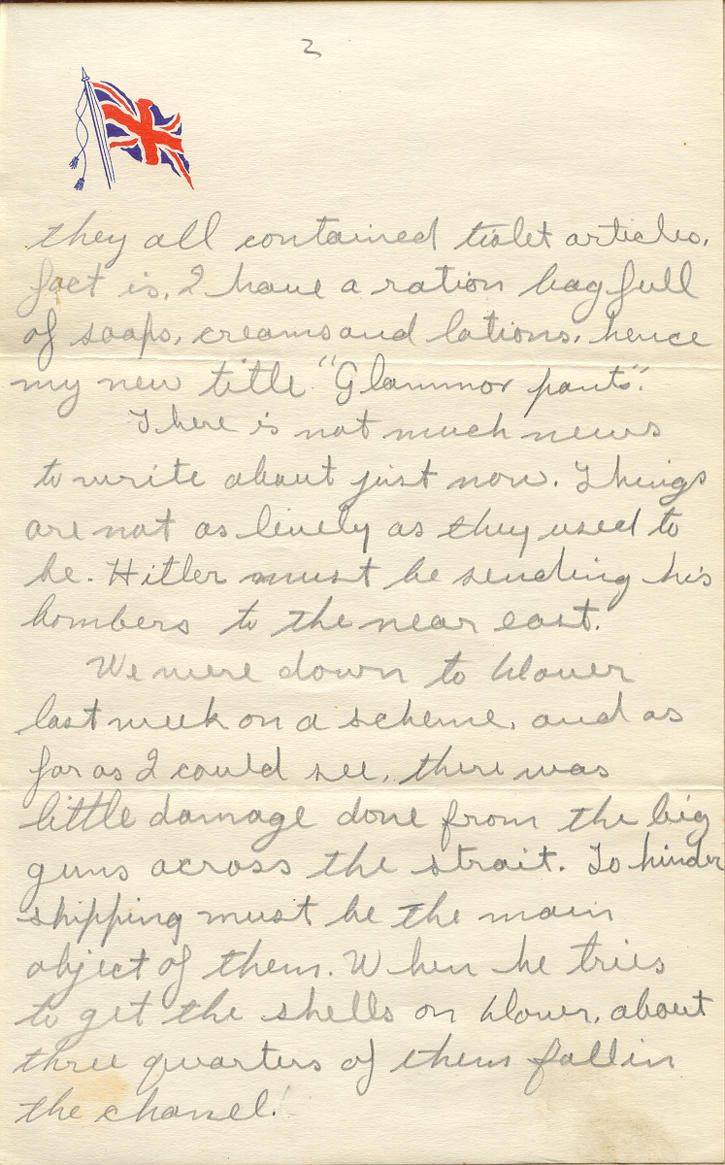 2
they all contained tiolet articles,
fact is, I have a ration bag full
of soaps, creams and lations, hence
my new title "Glammor pants".
There is not much news
to write about just now. Things
are not as lively as they used to
be. Hitler must be sending his
bombers to the near east.
We were down to Dover
last week on a scheme, and as
far as I could see, there was
little damage done from the big
guns across the strait. To hinder
shipping must be the main
object of them. When he tries
to get the shells on Dover, about
three quarters of them fall in
the chanel.